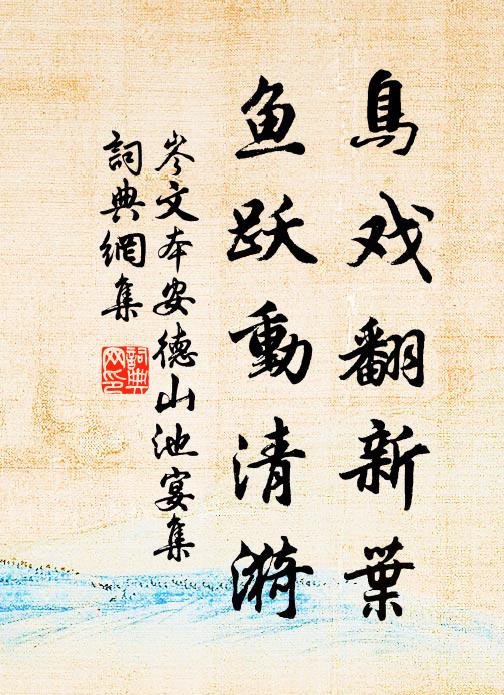 鳥戏翻新葉
鱼跃動清漪
岑文本安德山池宴集
詞典網集
詞典網印